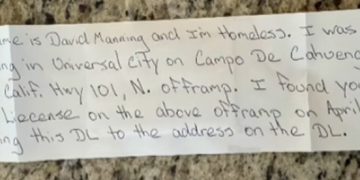 me is David Manning and I'm Homeless. I was
ng in Universal City on Campo De Cahueng
Calif. Hwy 101, N. offramp. I found you
Liecense on the above offramp on April
ing this DL to the address on the DL.